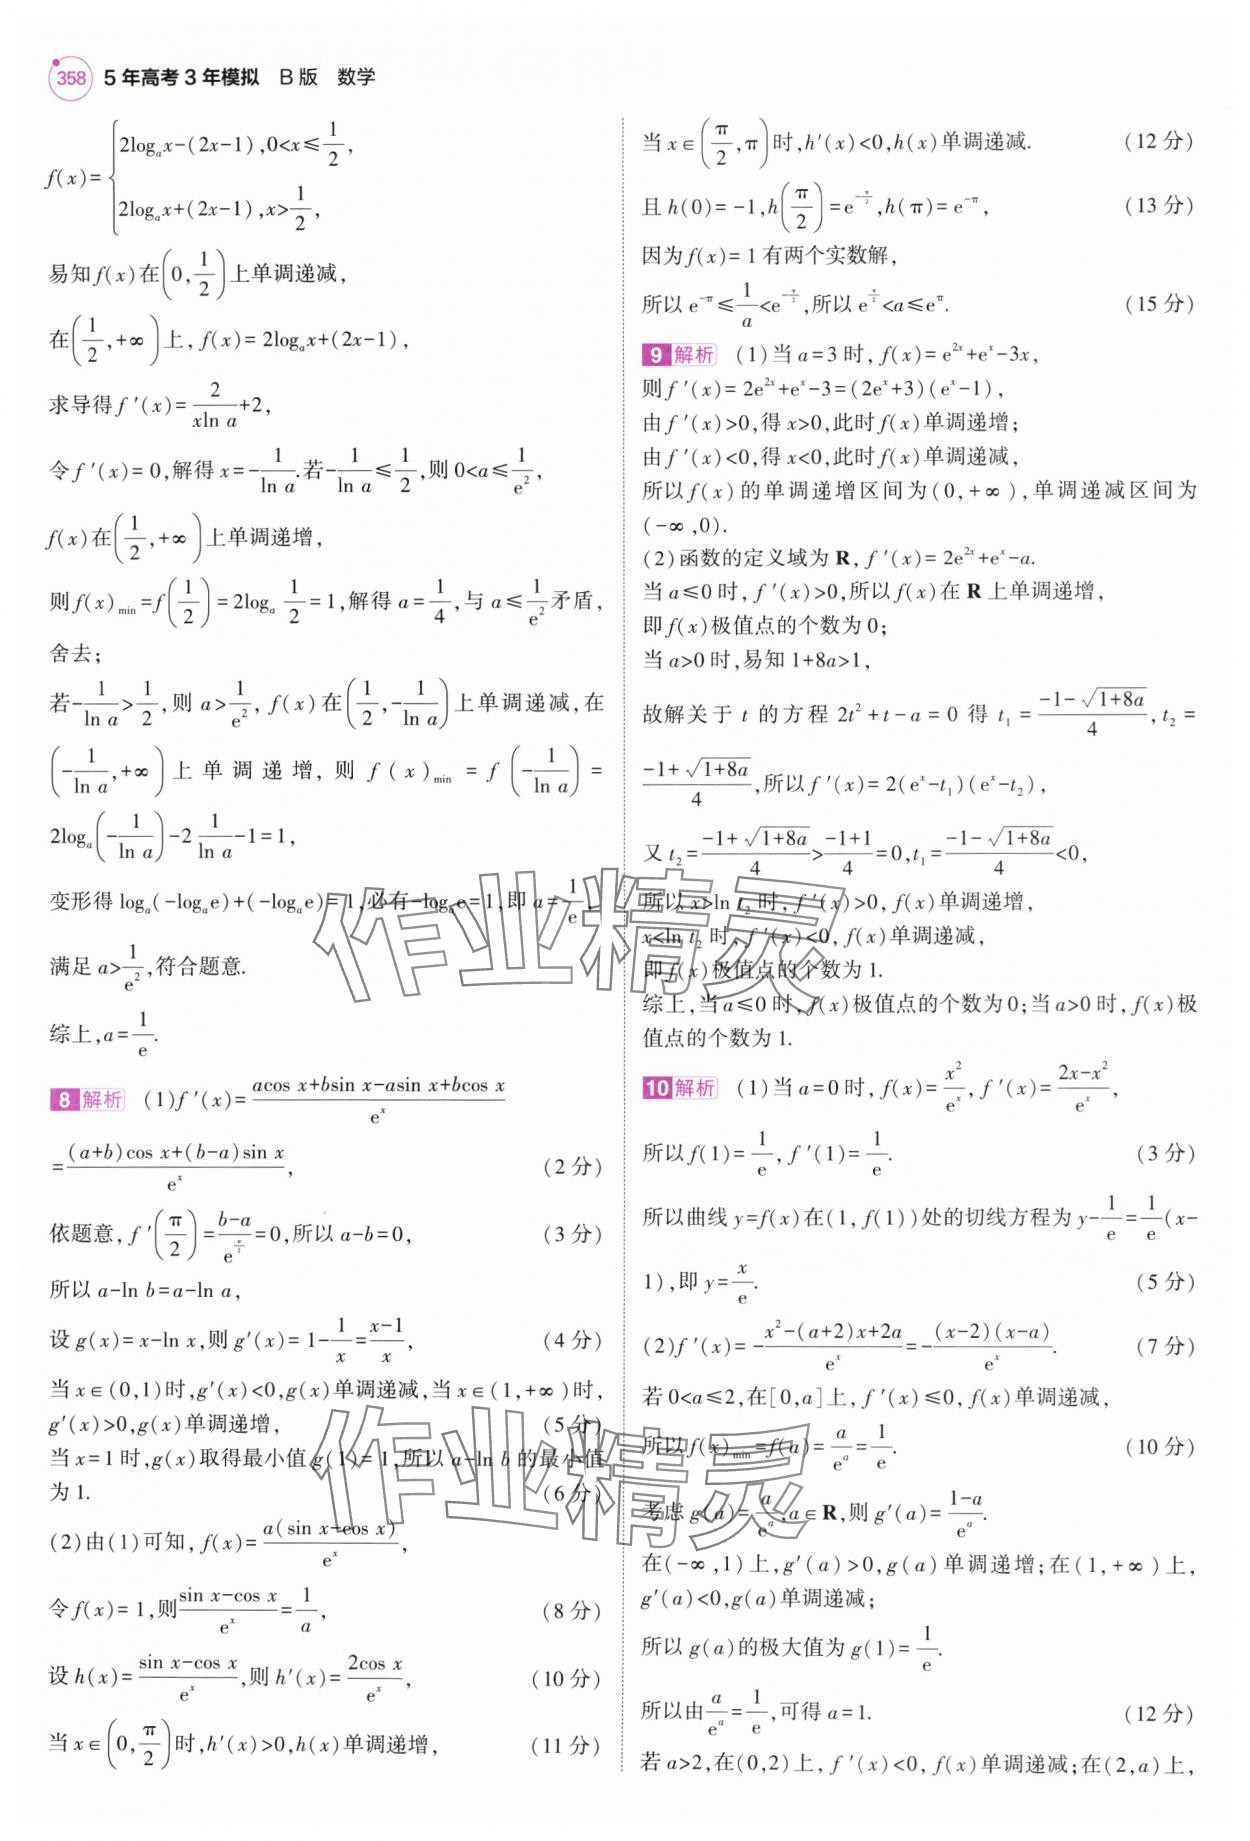 358 5年高考3年模拟 B版 数学
f(x)={2logₐx-(2x-1),0<x≤1/2,
2logₐx+(2x-1),x>1/2,
易知f(x)在(0,1/2)上单调递减,
在(1/2,+∞)上,f(x)=2logₐx+(2x-1),
求导得f′(x)=2/(xln a)+2,
令f′(x)=0,解得x=-1/ln a.若-1/ln a≤1/2,则0<a≤1/e²,
f(x)在(1/2,+∞)上单调递增,
则f(x)min=f(1/2)=2logₐ 1/2=1,解得a=1/4,与a≤1/e²矛盾,
舍去;
若-1/ln a>1/2,则a>1/e²,f(x)在(1/2,-1/ln a)上单调递减,在
(-1/ln a,+∞)上单调递增,则f(x)min=f(-1/ln a)=
2logₐ(-1/ln a)-2 1/ln a-1=1,
变形得logₐ(-logₐe)+(-logₐe)=1,必有-logₐe=1,即a=1/e,
满足a>1/e²,符合题意.
综上,a=1/e.
8 解析 (1)f′(x)=(acos x+bsin x-asin x+bcos x)/eˣ
=((a+b)cos x+(b-a)sin x)/eˣ, (2分)
依题意,f′(π/2)=(b-a)/e^(π/2)=0,所以a-b=0, (3分)
所以a-ln b=a-ln a,
设g(x)=x-ln x,则g′(x)=1-1/x=(x-1)/x, (4分)
当x∈(0,1)时,g′(x)<0,g(x)单调递减,当x∈(1,+∞)时,
g′(x)>0,g(x)单调递增, (5分)
当x=1时,g(x)取得最小值g(1)=1,所以a-ln b的最小值
为1. (6分)
(2)由(1)可知,f(x)=a(sin x-cos x)/eˣ,
令f(x)=1,则(sin x-cos x)/eˣ=1/a, (8分)
设h(x)=(sin x-cos x)/eˣ,则h′(x)=2cos x/eˣ, (10分)
当x∈(0,π/2)时,h′(x)>0,h(x)单调递增, (11分)
当x∈(π/2,π)时,h′(x)<0,h(x)单调递减. (12分)
且h(0)=-1,h(π/2)=e^(-π/2),h(π)=e^(-π), (13分)
因为f(x)=1有两个实数解,
所以e^(-π)≤1/a<e^(-π/2),所以e^(π/2)<a≤e^π. (15分)
9 解析 (1)当a=3时,f(x)=e²ˣ+eˣ-3x,
则f′(x)=2e²ˣ+eˣ-3=(2eˣ+3)(eˣ-1),
由f′(x)>0,得x>0,此时f(x)单调递增;
由f′(x)<0,得x<0,此时f(x)单调递减,
所以f(x)的单调递增区间为(0,+∞),单调递减区间为
(-∞,0).
(2)函数的定义域为R,f′(x)=2e²ˣ+eˣ-a.
当a≤0时,f′(x)>0,所以f(x)在R上单调递增,
即f(x)极值点的个数为0;
当a>0时,易知1+8a>1,
故解关于t的方程2t²+t-a=0得t₁=(-1-√(1+8a))/4,t₂=
(-1+√(1+8a))/4,所以f′(x)=2(eˣ-t₁)(eˣ-t₂),
又t₂=(-1+√(1+8a))/4>(-1+1)/4=0,t₁=(-1-√(1+8a))/4<0,
所以x>ln t₂时,f′(x)>0,f(x)单调递增,
x<ln t₂时,f′(x)<0,f(x)单调递减,
即f(x)极值点的个数为1.
综上,当a≤0时,f(x)极值点的个数为0;当a>0时,f(x)极
值点的个数为1.
10 解析 (1)当a=0时,f(x)=x²/eˣ,f′(x)=(2x-x²)/eˣ,
所以f(1)=1/e,f′(1)=1/e. (3分)
所以曲线y=f(x)在(1,f(1))处的切线方程为y-1/e=1/e(x-
1),即y=x/e. (5分)
(2)f′(x)=-(x²-(a+2)x+2a)/eˣ=-(x-2)(x-a)/eˣ. (7分)
若0<a≤2,在[0,a]上,f′(x)≤0,f(x)单调递减,
所以f(x)min=f(a)=a/eᵃ=1/e. (10分)
考虑g(a)=a/eᵃ,a∈R,则g′(a)=(1-a)/eᵃ.
在(-∞,1)上,g′(a)>0,g(a)单调递增;在(1,+∞)上,
g′(a)<0,g(a)单调递减;
所以g(a)的极大值为g(1)=1/e.
所以由a/eᵃ=1/e,可得a=1. (12分)
若a>2,在(0,2)上,f′(x)<0,f(x)单调递减;在(2,a)上,
作业精灵
作业精灵